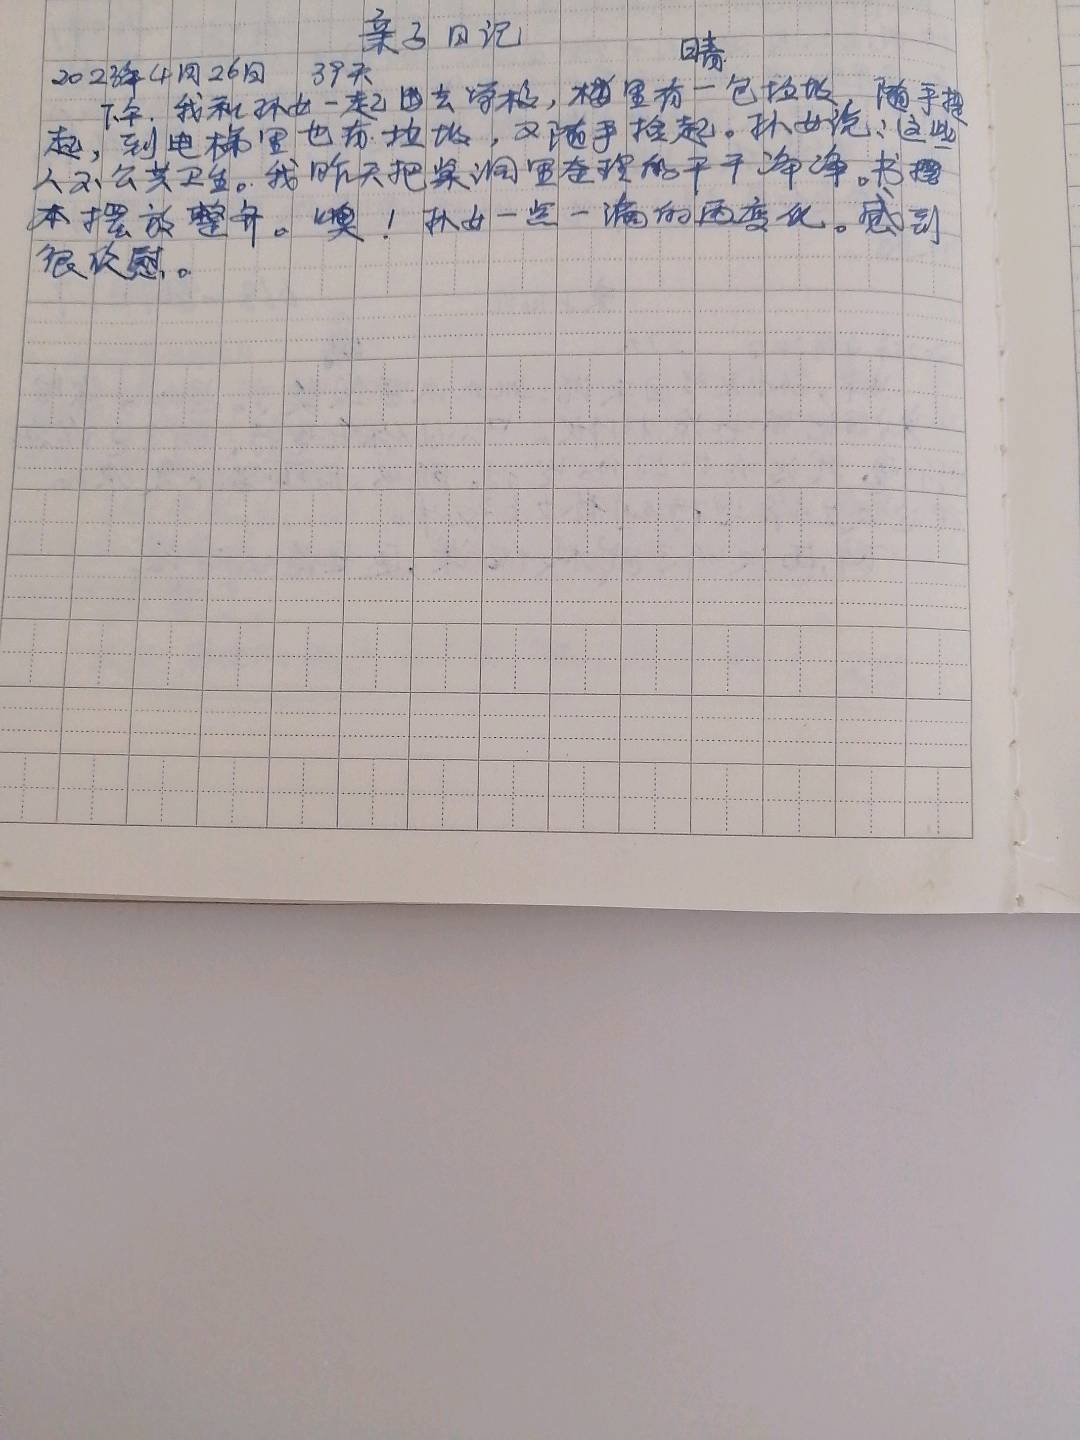 亲子日记
2023年4月26日 39天 晴
下午.我和孙女一起出去学校，楼里有一包垃圾 随手捡
起，到电梯里也有垃圾，又随手捡起。孙女说：这些
人不公共卫生。我昨天把桌洞里整理的干干净净。书
本摆放整齐。噢！孙女一点一滴的在变化。感到
很欣慰。